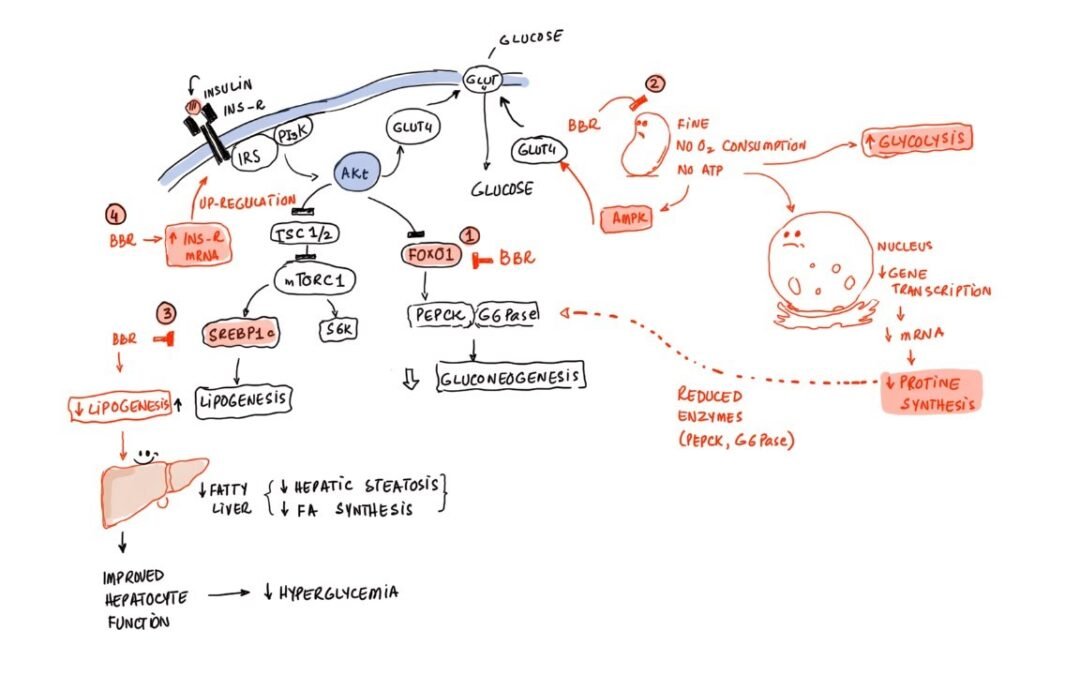 GLUCOSE
GLUT
4
INSULIN
INS-R
IRS
PI3K
GLUT4
AKt
GLUCOSE
GLUT4
2
BBR
FINE
NO O2 CONSUMPTION
NO ATP
↑ GLYCOLYSIS
AMPK
UP-REGULATION
4
BBR → ↑ INS-R
mRNA
TSC 1/2
mTORC1
S6K
1
FOXO1
BBR
PEPCK
G6Pase
⇩ GLUCONEOGENESIS
NUCLEUS
↓ GENE
TRANSCRIPTION
↓ mRNA
↓ PROTINE
SYNTHESIS
REDUCED
ENZYMES
(PEPCK, G6Pase)
3
BBR
SREBP1c
↓ LIPOGENESIS
↑ LIPOGENESIS
↓ FATTY
LIVER
↓ HEPATIC STEATOSIS
↓ FA SYNTHESIS
IMPROVED
HEPATOCYTE
FUNCTION
→ ↓ HYPERGLYCEMIA